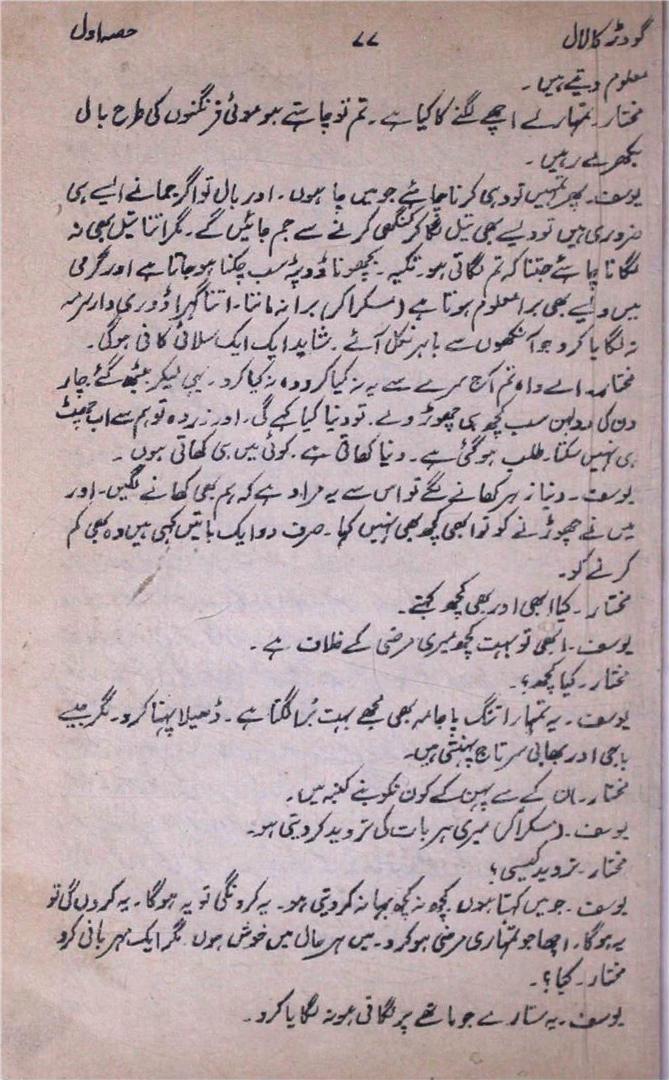 گودڑ کا لال ۷۷ حصہ اول
معلوم دیتے ہیں۔
مختار۔ تمہارے اچھے لگنے کا کیا ہے۔ تم تو چاہتے ہو موئی فرنگنوں کی طرح بال
بکھرے رہیں۔
یوسف۔ پھر تمہیں تو وہی کرنا چاہئے جو میں چاہوں۔ اور بال تو اگر جمانے ایسے ہی
ضروری ہیں تو ویسے بھی تیل لگا کر کنگھی کرنے سے جم جائیں گے۔ مگر اتنا تیل بھی نہ
لگانا چاہئے جتنا کہ تم لگاتی ہو۔ تکیہ۔ بچھونا ڈوپٹہ سب چکنا ہو جاتا ہے اور گرمی
میں ویسے بھی برا معلوم ہوتا ہے (مسکرا کر) برا نہ ماننا۔ اتنا گہرا ڈوری دار سرمہ
نہ لگایا کرو جو آنکھوں سے باہر نکل آئے۔ شاید ایک ایک سلائی کافی ہوگی۔
مختار۔ اے واہ تم آج سرے سے یہ نہ کیا کرو وہ نہ کیا کرو۔ یہی لیکر بیٹھ گئے چار
دن کی دولہن سب کچھ ہی چھوڑ دے۔ تو دنیا کیا کہے گی۔ اور زردہ تو ہم سے اب چھٹ
ہی نہیں سکتا۔ طلب ہو گئی ہے۔ دنیا کھاتی ہے۔ کوئی میں ہی کھاتی ہوں۔
یوسف۔ دنیا زہر کھانے لگے تو اس سے یہ مراد ہے کہ ہم بھی کھانے لگیں۔ اور
میں نے چھوڑنے کو تو ابھی کچھ بھی نہیں کہا۔ صرف دو ایک باتیں کہی ہیں وہ بھی کم
کرنے کو۔
مختار۔ کیا ابھی اور بھی کچھ کہتے۔
یوسف۔ ابھی تو بہت کچھ میری مرضی کے خلاف ہے۔
مختار۔ کیا کچھ؟۔
یوسف۔ یہ تمہارا تنگ پاجامہ بھی مجھے بہت بُرا لگتا ہے۔ ڈھیلا پہنا کرو۔ مگر جیسے
باجی اور بھابی سرتاج پہنتی ہیں۔
مختار۔ ان کے سے پہن کے کون نکو بنے کنبہ میں۔
یوسف۔ (مسکرا کر) میری ہر بات کی تردید کر دیتی ہو۔
مختار۔ تردید کیسی؟
یوسف۔ جو میں کہتا ہوں کچھ نہ کچھ بہانہ کر دیتی ہو۔ یہ کرونگی تو یہ ہوگا۔ یہ کروں گی تو
یہ ہوگا۔ اچھا جو تمہاری مرضی ہو کرو۔ میں ہر حال میں خوش ہوں مگر ایک مہربانی کرو
مختار۔ کیا؟۔
یوسف۔ یہ ستارے جو ماتھے پر لگاتی ہو نہ لگایا کرو۔